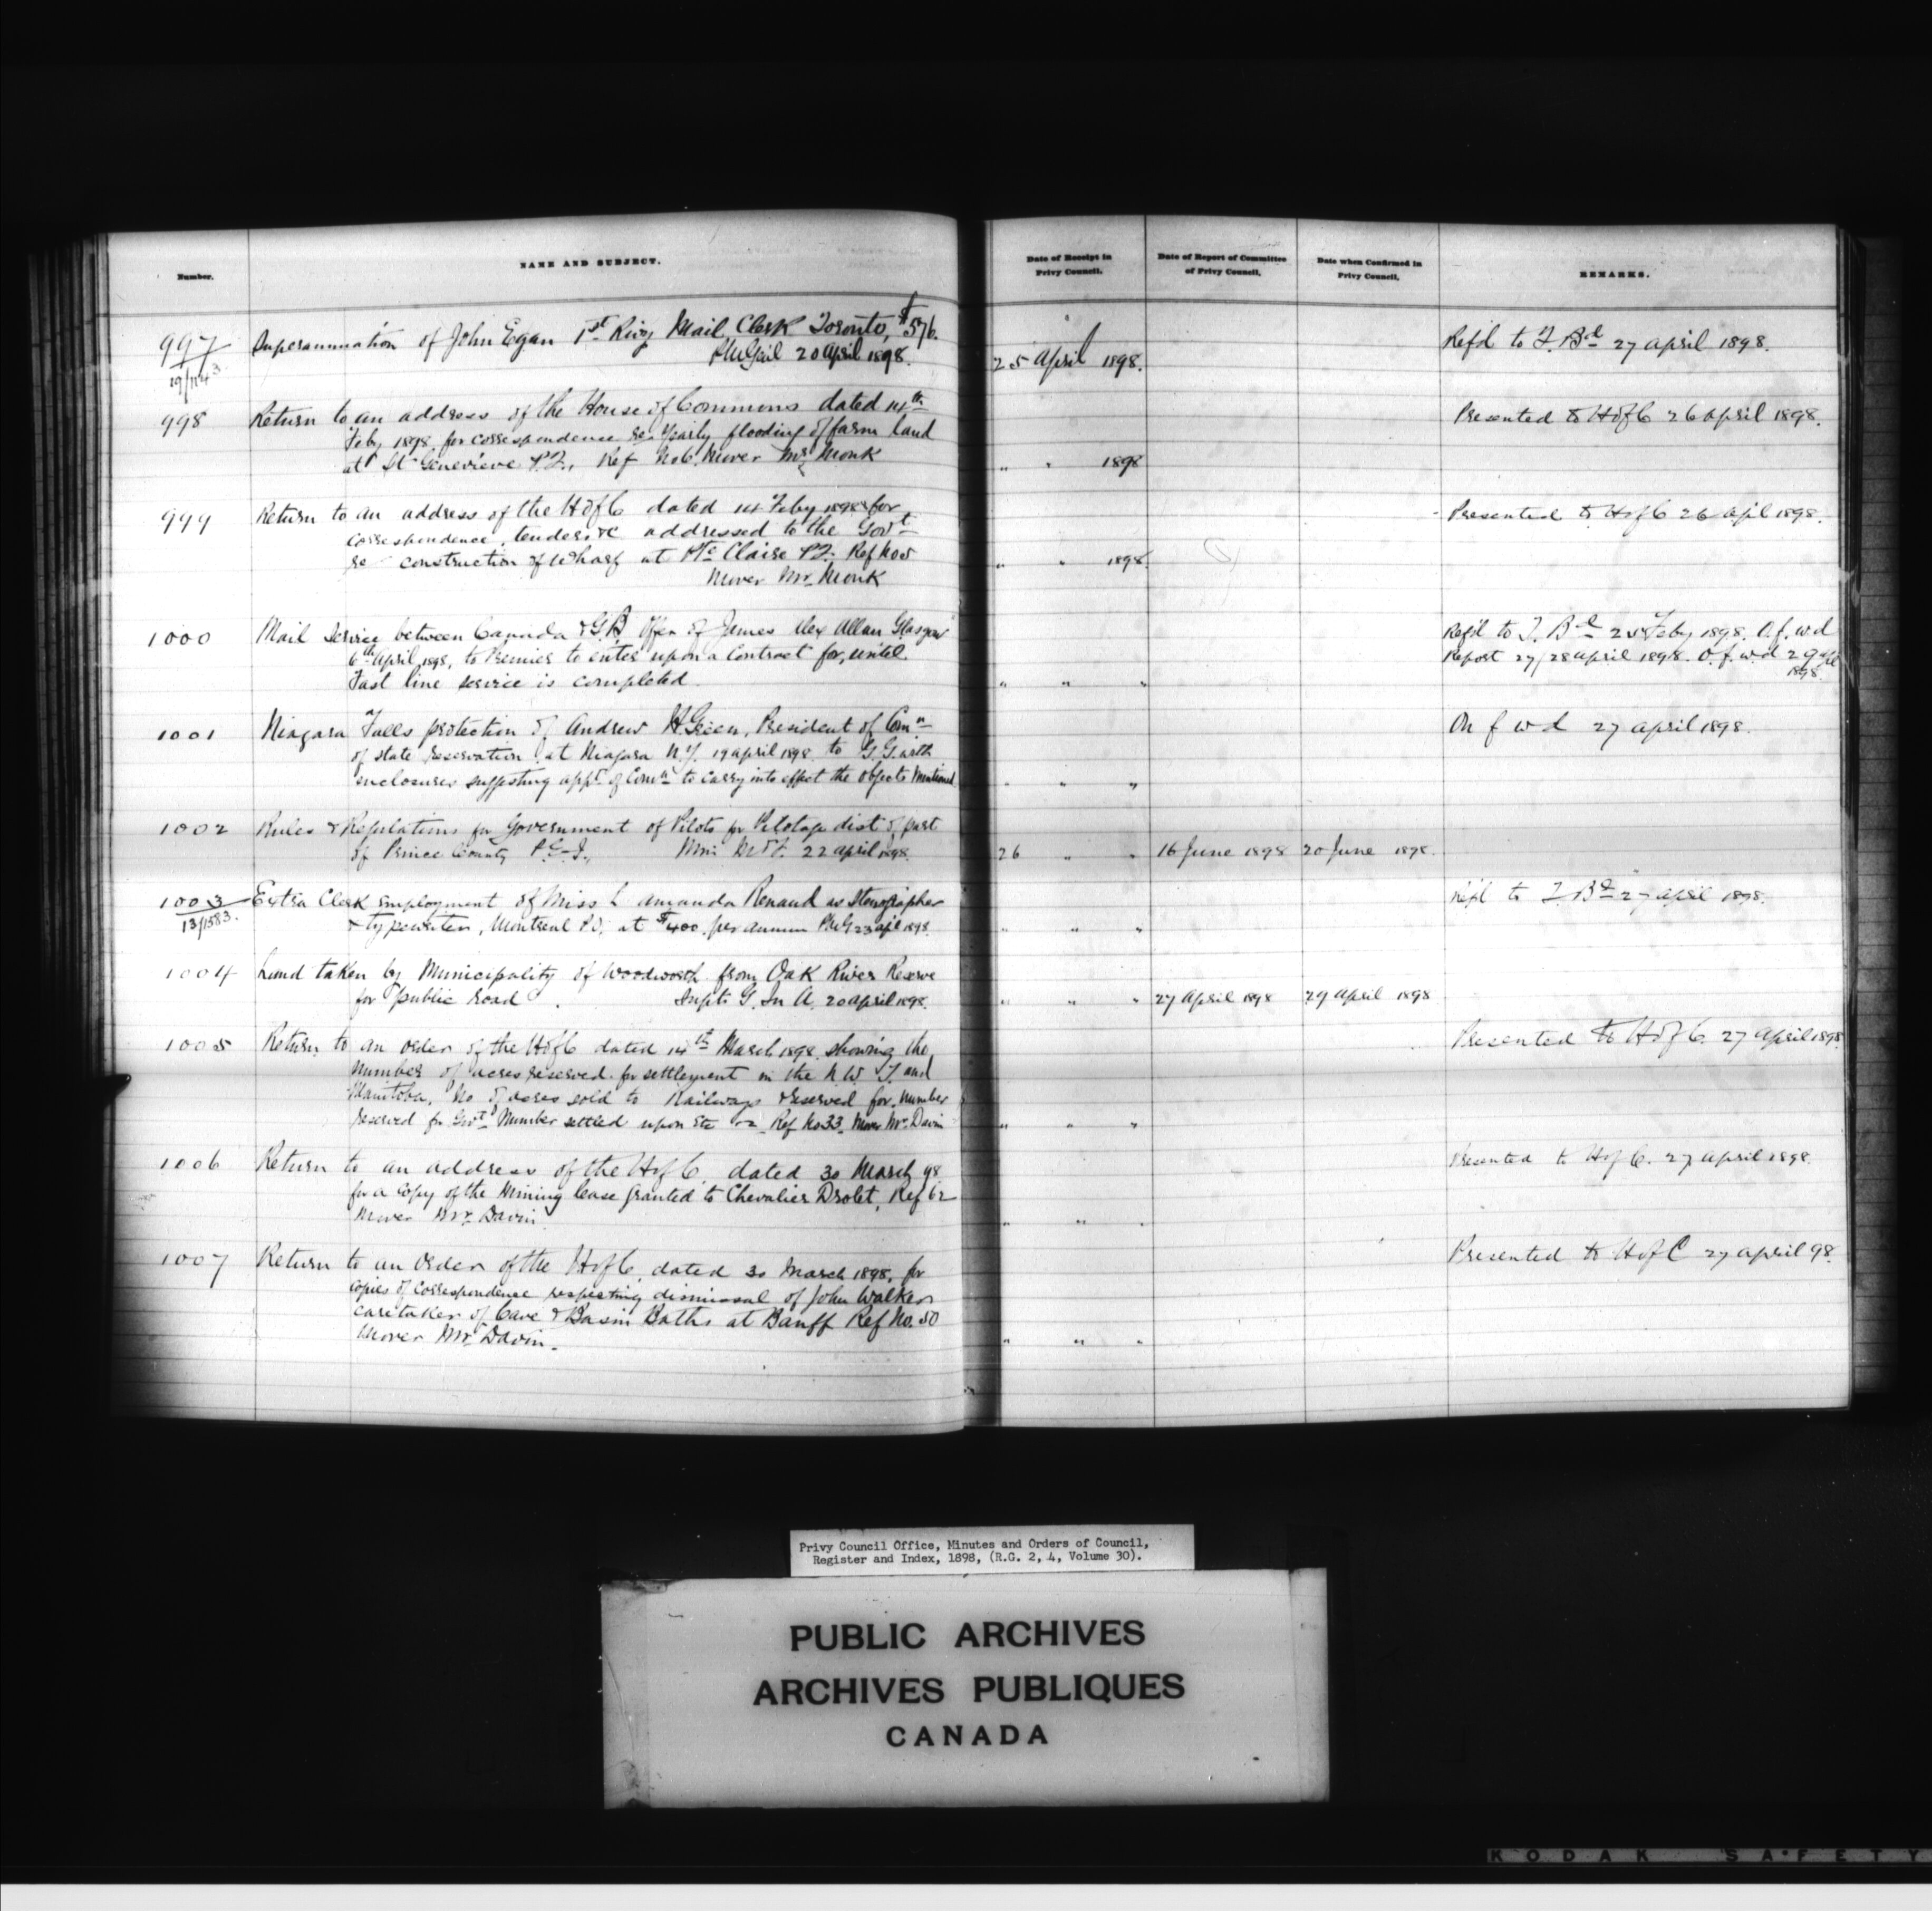 Number.
NAME AND SUBJECT.
Date of Receipt in
Privy Council.
Date of Report of Committee
of Privy Council.
Date when Confirmed in
Privy Council.
REMARKS.
997
19/1143
Superannuation of John Egan 1st Rwy Mail Clerk Toronto, $576.
PMGenl 20 april 1898.
25 April 1898.
Refd to T. Bd 27 april 1898.
998
Return to an address of the House of Commons dated 14th
Feby 1898 for correspondence re yearly flooding of farm land
at St Genevieve P.Q., Ref No 6. Mover Mr Monk
" " 1898
Presented to H of C 26 april 1898.
999
Return to an address of the H of C dated 14 Feby 1898 for
correspondence, tenders &c addressed to the Govt
re construction of wharf at Pte Claire P.Q. Ref No 5
Mover Mr. Monk
" " 1898.
Presented to H of C 26 apil 1898.
1000
Mail Service between Canada & G.B. Offer of James Alex Allan Glasgow
6th April 1898, to Premier to enter upon a Contract for, until
Fast line service is completed.
" " "
Refd to T. Bd 25 Feby 1898. O. f. w d
Report 27/28 april 1898. O. f. w. d 29 apl
1898.
1001
Niagara Falls protection of Andrew H. Green, President of Comn
of State reservation at Niagara N.Y. 19 april 1898 to G.G. with
enclosures suggesting appt of Comn to carry into effect the objects mentioned
" " "
On f w d 27 april 1898.
1002
Rules & Regulations for Government of Pilots for Pilotage dist of part
of Prince County P.E.I., Min M & F. 22 april 1898.
26 " "
16 June 1898
20 June 1898.
1003
13/1583.
Extra Clerk Employment of Miss L amanda Renaud as Stenographer
& typewriter, Montreal P.O. at $400. per annum PMG 23 apl 1898.
" " "
Refd to T. Bd 27 april 1898.
1004
Land taken by Municipality of Woodworth from Oak River Reserve
for public road. Supt G. In A. 20 april 1898.
" " "
27 April 1898
29 April 1898
1005
Return to an order of the H of C dated 14th March 1898 showing the
number of acres reserved for settlement in the N W T. and
Manitoba, No of acres sold to Railways & reserved for, number
reserved for Govt Number settled upon etc Ref No 33. Mover Mr. Davin
" " "
Presented to H of C. 27 april 1898
1006
Return to an address of the H of C, dated 30 March 98
for a copy of the Mining lease granted to Chevalier Drolet, Ref 62
Mover Mr. Davin.
" " "
Presented to H of C. 27 april 1898.
1007
Return to an Order of the H of C, dated 30 March 1898, for
copies of correspondence respecting dismissal of John Walker
caretaker of Cave & Basin Baths at Banff Ref No. 50
Mover Mr Davin.
" " "
Presented to H of C 27 april 98.
Privy Council Office, Minutes and Orders of Council,
Register and Index, 1898, (R.G. 2, 4, Volume 30).
PUBLIC ARCHIVES
ARCHIVES PUBLIQUES
CANADA
KODAK SAFETY